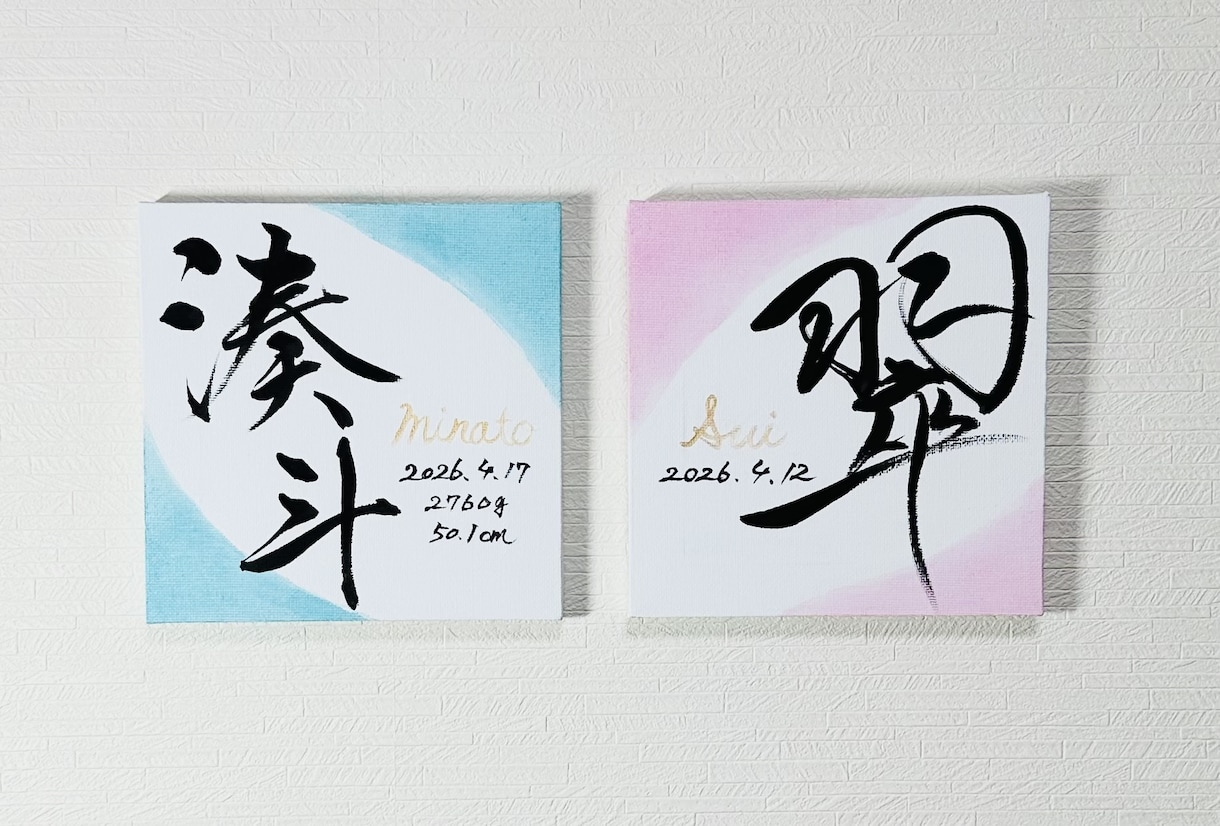 湊斗
Minato
2026.4.17
2760g
50.1cm
翠
Sui
2026.4.12